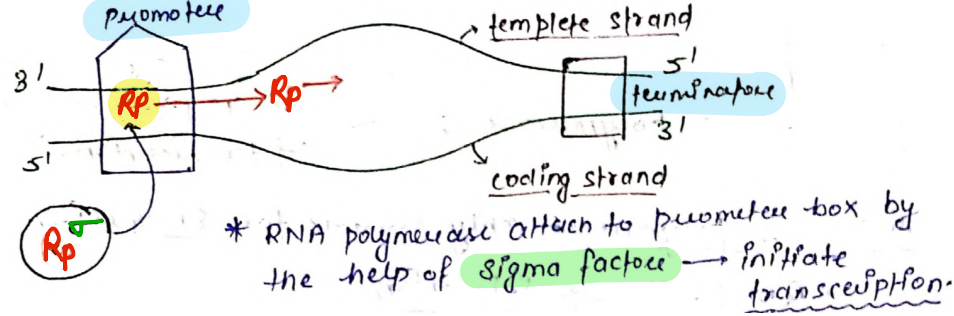 promoter
templete strand
3'
5'
Rp
Rp
terminator
5'
3'
coding strand
Rpσ
* RNA polymerase attach to prometer box by
the help of sigma factor → initiate
transcription.